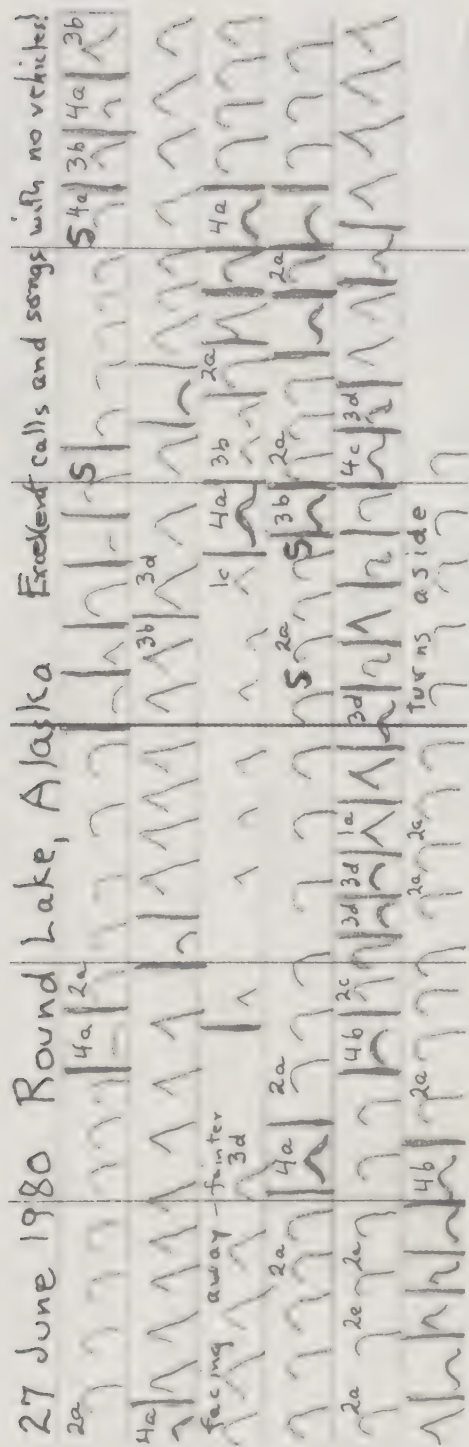 27 June 1980 Round Lake, Alaska Excellent calls and songs with no vehicles!
2a 4a 2a S S 4a 3b 4a 3b
4a 3b 3d
facing away - fainter 3d 1c 4a 3b 2a 4a
2a 4a 2a S 2a S 3b 2a 2a
2a 2e 2a 4b 2c 3d 3d 1a 3d 4c 3d
4b 2a 2a 2c turns aside